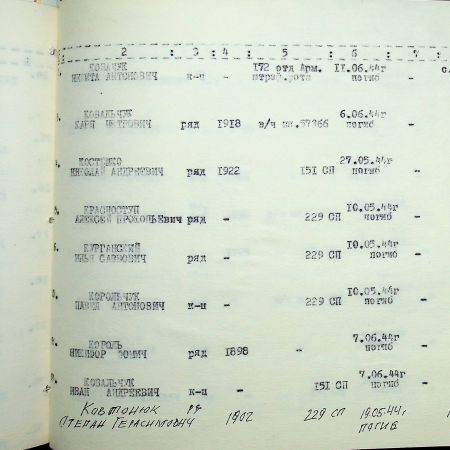 : 2 : 3 : 4 : 5 : 6 : 7 :
КОВАЧУК 172 отд Арм. 11.06.44г
НИКИТА АНТОНОВИЧ к-ц - штраф.рота погиб -
КОВАЛЬЧУК 6.06.44г
КАРП ПЕТРОВИЧ ряд 1918 в/ч пп.57366 погиб -
КОСТЕНКО 27.05.44г
НИКОЛАЙ АНДРЕЕВИЧ ряд 1922 151 СП погиб -
КРАСНОСТУП 10.05.44г
АЛЕКСЕЙ ПРОКОПЬЕВИЧ ряд - 229 СП погиб -
КУРГАНСКИЙ 10.05.44г
ИЛЬЯ САВВОВИЧ ряд - 229 СП погиб -
КОРОЛЬЧУК 10.05.44г
ПАВЕЛ АНТОНОВИЧ к-ц - 229 СП погиб -
КОРОЛЬ 7.06.44г
НИКИФОР ФОМИЧ ряд 1898 - погиб -
КОВАЛЬЧУК 7.06.44г
ИВАН АНДРЕЕВИЧ к-ц - 151 СП погиб -
КОВТОНЮК РЯ 1902 229 СП 19.05.44г
СТЕПАН ГЕРАСИМОВИЧ ПОГИБ